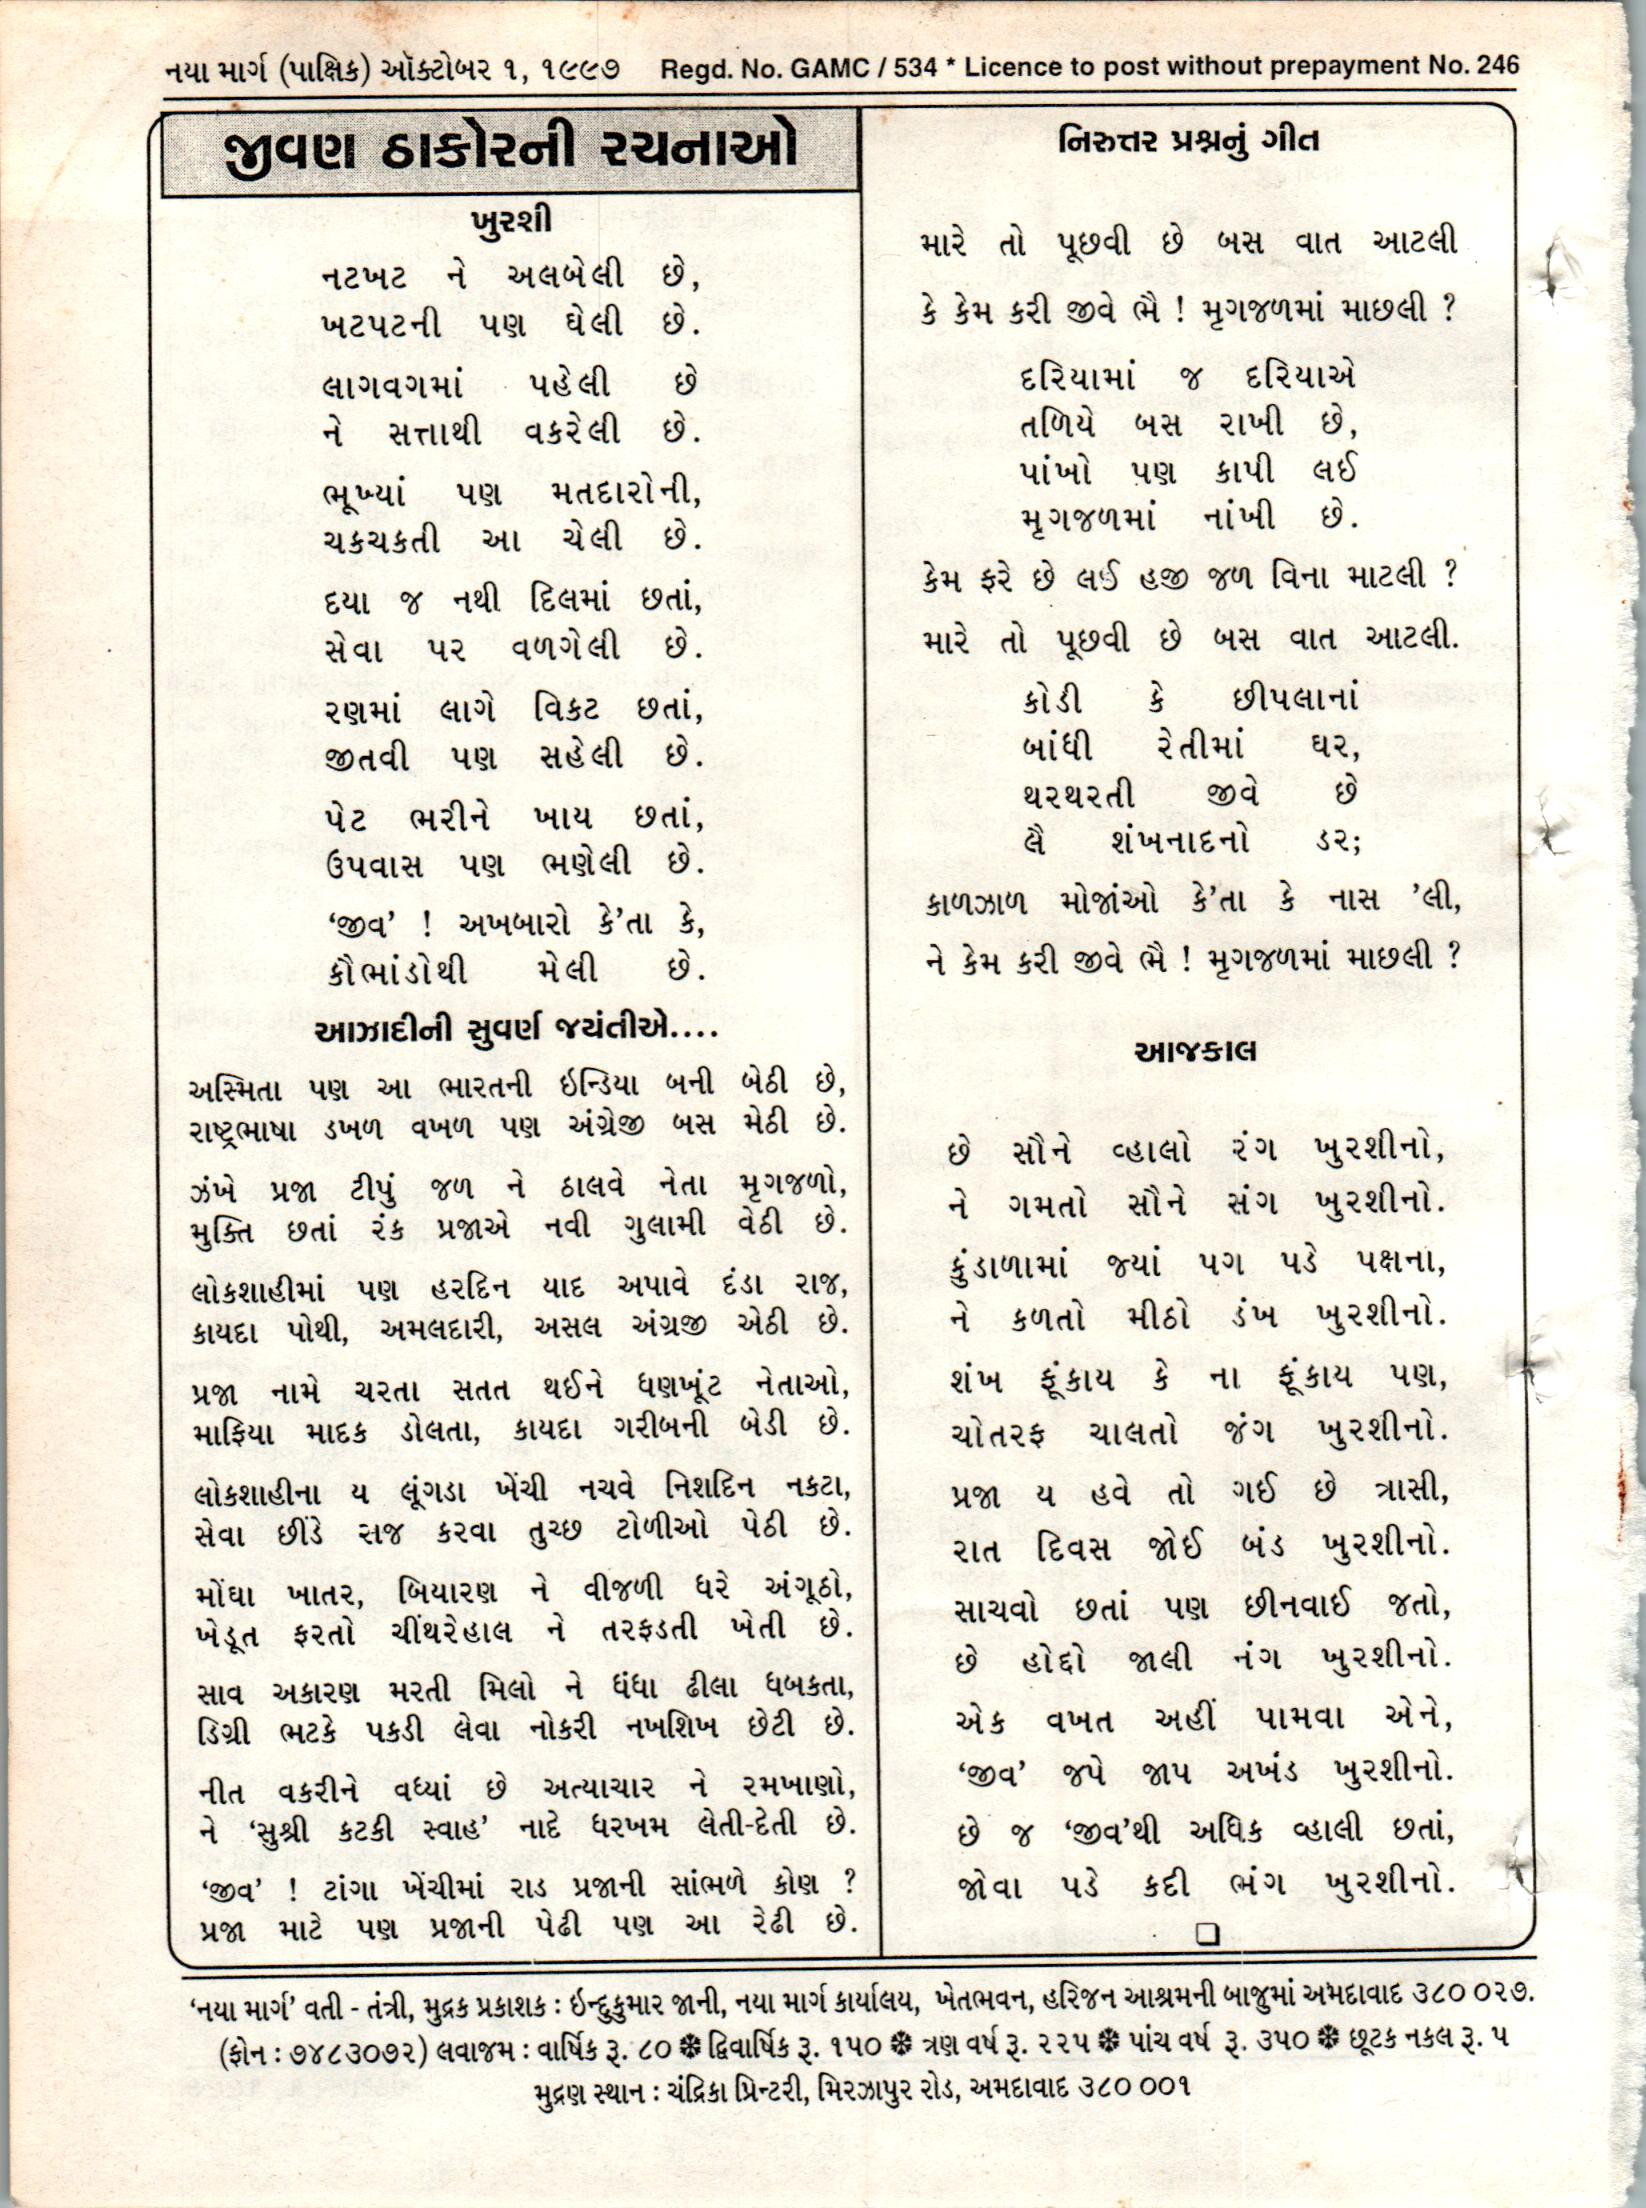 નયા માર્ગ (પાક્ષિક) ઑક્ટોબર ૧, ૧૯૯૭ Regd. No. GAMC / 534 * Licence to post without prepayment No. 246
જીવણ ઠાકોરની રચનાઓ
ખુરશી
નટખટ ને અલબેલી છે,
ખટપટની પણ ઘેલી છે.
લાગવગમાં પહેલી છે
ને સત્તાથી વકરેલી છે.
ભૂખ્યાં પણ મતદારોની,
ચકચકતી આ ચેલી છે.
દયા જ નથી દિલમાં છતાં,
સેવા પર વળગેલી છે.
રણમાં લાગે વિકટ છતાં,
જીતવી પણ સહેલી છે.
પેટ ભરીને ખાય છતાં,
ઉપવાસ પણ ભણેલી છે.
‘જીવ’ ! અખબારો કે’તા કે,
કૌભાંડોથી મેલી છે.
આઝાદીની સુવર્ણ જયંતીએ....
અસ્મિતા પણ આ ભારતની ઇન્ડિયા બની બેઠી છે,
રાષ્ટ્રભાષા ડખળ વખળ પણ અંગ્રેજી બસ મેઠી છે.
ઝંખે પ્રજા ટીપું જળ ને ઠાલવે નેતા મૃગજળો,
મુક્તિ છતાં રંક પ્રજાએ નવી ગુલામી વેઠી છે.
લોકશાહીમાં પણ હરદિન યાદ અપાવે દંડા રાજ,
કાયદા પોથી, અમલદારી, અસલ અંગ્રજી એઠી છે.
પ્રજા નામે ચરતા સતત થઈને ધણખૂંટ નેતાઓ,
માફિયા માદક ડોલતા, કાયદા ગરીબની બેડી છે.
લોકશાહીના ય લૂંગડા ખેંચી નચવે નિશદિન નકટા,
સેવા છીંડે રાજ કરવા તુચ્છ ટોળીઓ પેઠી છે.
મોંઘા ખાતર, બિયારણ ને વીજળી ધરે અંગૂઠો,
ખેડૂત ફરતો ચીંથરેહાલ ને તરફડતી ખેતી છે.
સાવ અકારણ મરતી મિલો ને ધંધા ઢીલા ધબકતા,
ડિગ્રી ભટકે પકડી લેવા નોકરી નખશિખ છેટી છે.
નીત વકરીને વધ્યાં છે અત્યાચાર ને રમખાણો,
ને ‘સુશ્રી કટકી સ્વાહ’ નાદે ધરખમ લેતી-દેતી છે.
‘જીવ’ ! ટાંગા ખેંચીમાં રાડ પ્રજાની સાંભળે કોણ ?
પ્રજા માટે પણ પ્રજાની પેઢી પણ આ રેઢી છે.
નિરુત્તર પ્રશ્નનું ગીત
મારે તો પૂછવી છે બસ વાત આટલી
કે કેમ કરી જીવે ભૈ ! મૃગજળમાં માછલી ?
દરિયામાં જ દરિયાએ
તળિયે બસ રાખી છે,
પાંખો પણ કાપી લઈ
મૃગજળમાં નાંખી છે.
કેમ ફરે છે લઈ હજી જળ વિના માટલી ?
મારે તો પૂછવી છે બસ વાત આટલી.
કોડી કે છીપલાનાં
બાંધી રેતીમાં ઘર,
થરથરતી જીવે છે
લૈ શંખનાદનો ડર;
કાળઝાળ મોજાંઓ કે’તા કે નાસ ’લી,
ને કેમ કરી જીવે ભૈ ! મૃગજળમાં માછલી ?
આજકાલ
છે સૌને વ્હાલો રંગ ખુરશીનો,
ને ગમતો સૌને સંગ ખુરશીનો.
કુંડાળામાં જ્યાં પગ પડે પક્ષના,
ને કળતો મીઠો ડંખ ખુરશીનો.
શંખ ફૂંકાય કે ના ફૂંકાય પણ,
ચોતરફ ચાલતો જંગ ખુરશીનો.
પ્રજા ય હવે તો ગઈ છે ત્રાસી,
રાત દિવસ જોઈ બંડ ખુરશીનો.
સાચવો છતાં પણ છીનવાઈ જતો,
છે હોદ્દો જાલી નંગ ખુરશીનો.
એક વખત અહીં પામવા એને,
‘જીવ’ જપે જાપ અખંડ ખુરશીનો.
છે જ ‘જીવ’થી અધિક વ્હાલી છતાં,
જોવા પડે કદી ભંગ ખુરશીનો.
‘નયા માર્ગ’ વતી - તંત્રી, મુદ્રક પ્રકાશક : ઇન્દુકુમાર જાની, નયા માર્ગ કાર્યાલય, ખેતભવન, હરિજન આશ્રમની બાજુમાં અમદાવાદ ૩૮૦ ૦૨૭.
(ફોન : ૭૪૮૩૦૭૨) લવાજમ : વાર્ષિક રૂ. ૮૦ ❄ દ્વિવાર્ષિક રૂ. ૧૫૦ ❄ ત્રણ વર્ષ રૂ. ૨૨૫ ❄ પાંચ વર્ષ રૂ. ૩૫૦ ❄ છૂટક નકલ રૂ. ૫
મુદ્રણ સ્થાન : ચંદ્રિકા પ્રિન્ટરી, મિરઝાપુર રોડ, અમદાવાદ ૩૮૦ ૦૦૧